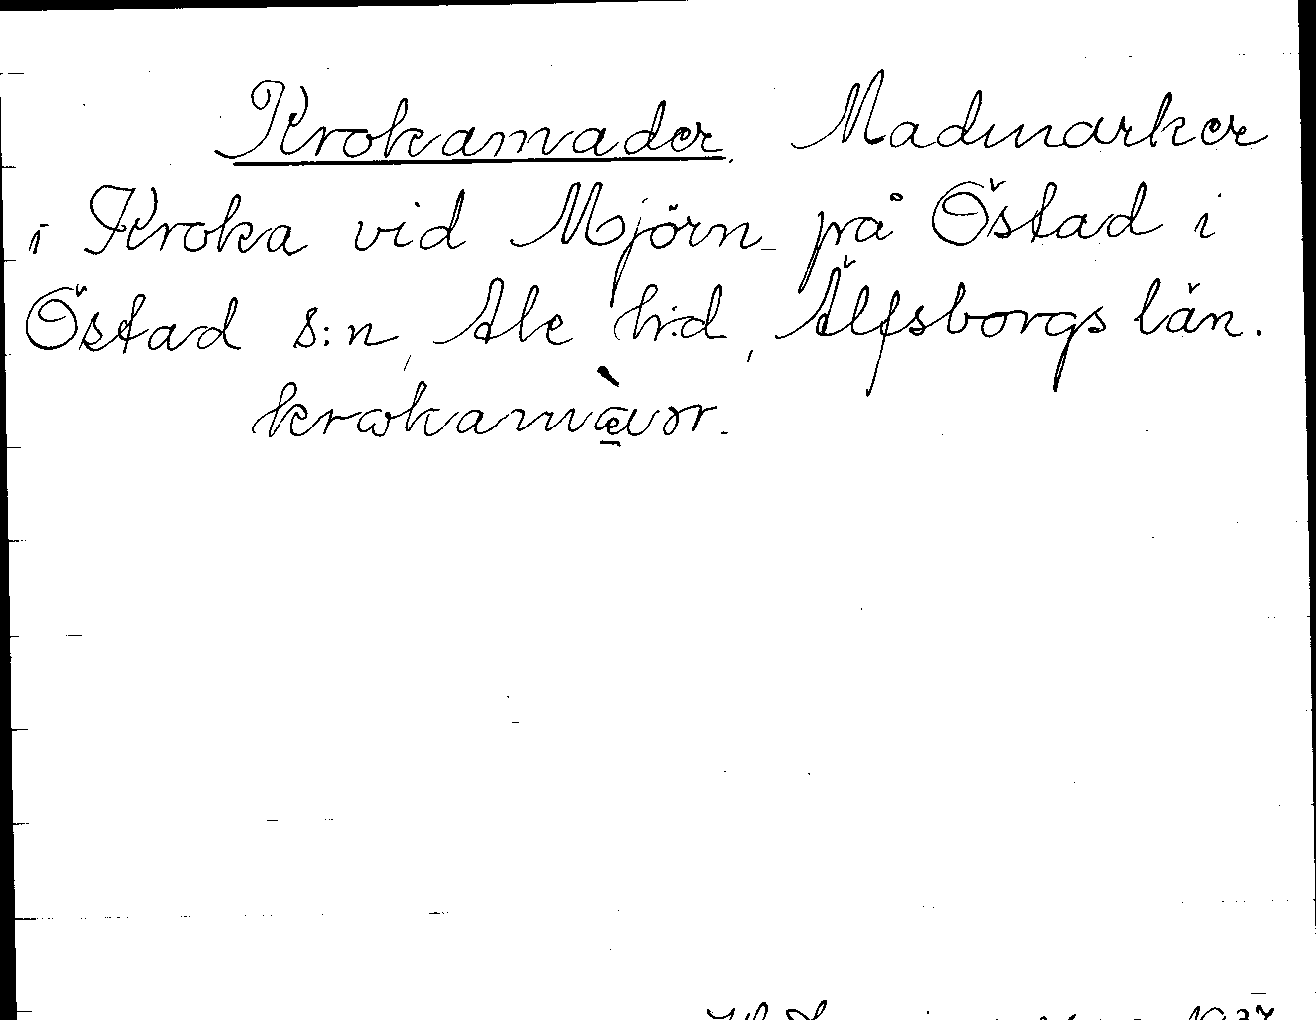 Krokamader. Madmarker
i Kroka vid Mjörn på Östad i
Östad s:n, Ale h:d, Älfsborgs län.